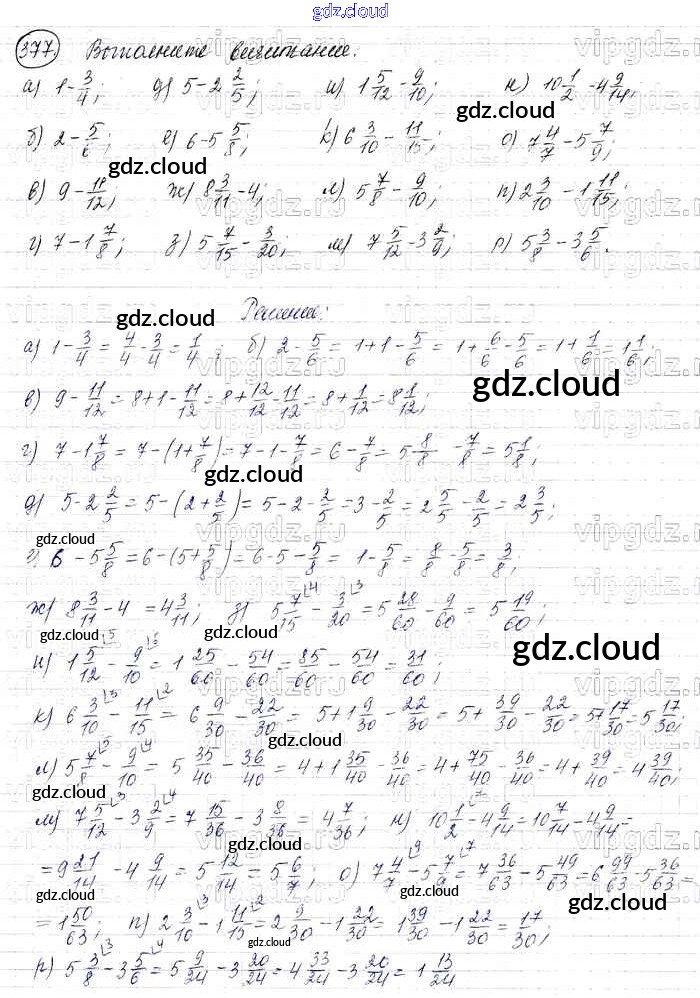 gdz.cloud
377. Выполните вычитание:
а) 1 - 3/4; д) 5 - 2 2/5; и) 1 5/12 - 9/10; н) 10 1/2 - 4 9/14;
б) 2 - 5/6; е) 6 - 5 5/8; к) 6 3/10 - 11/15; о) 7 4/7 - 5 7/9;
в) 9 - 11/12; ж) 8 3/11 - 4; л) 5 7/8 - 9/10; п) 2 3/10 - 1 11/15;
г) 7 - 1 7/8; з) 5 7/15 - 3/20; м) 7 5/12 - 3 2/9; р) 5 3/8 - 3 5/6.
Решение:
а) 1 - 3/4 = 4/4 - 3/4 = 1/4; б) 2 - 5/6 = 1 + 1 - 5/6 = 1 + 6/6 - 5/6 = 1 + 1/6 = 1 1/6;
в) 9 - 11/12 = 8 + 1 - 11/12 = 8 + 12/12 - 11/12 = 8 + 1/12 = 8 1/12;
г) 7 - 1 7/8 = 7 - (1 + 7/8) = 7 - 1 - 7/8 = 6 - 7/8 = 5 8/8 - 7/8 = 5 1/8;
д) 5 - 2 2/5 = 5 - (2 + 2/5) = 5 - 2 - 2/5 = 3 - 2/5 = 2 5/5 - 2/5 = 2 3/5;
6 - 5 5/8 = 6 - (5 + 5/8) = 6 - 5 - 5/8 = 1 - 5/8 = 8/8 - 5/8 = 3/8;
ж) 8 3/11 - 4 = 4 3/11; з) 5 7/15 - 3/20 = 5 28/60 - 9/60 = 5 19/60;
и) 1 5/12 - 9/10 = 1 25/60 - 54/60 = 85/60 - 54/60 = 31/60;
к) 6 3/10 - 11/15 = 6 9/30 - 22/30 = 5 + 1 9/30 - 22/30 = 5 + 39/30 - 22/30 = 5 + 17/30 = 5 17/30;
л) 5 7/8 - 9/10 = 5 35/40 - 36/40 = 4 + 1 35/40 - 36/40 = 4 + 75/40 - 36/40 = 4 + 39/40 = 4 39/40;
м) 7 5/12 - 3 2/9 = 7 15/36 - 3 8/36 = 4 7/36; н) 10 1/2 - 4 9/14 = 10 7/14 - 4 9/14 =
= 9 21/14 - 4 9/14 = 5 12/14 = 5 6/7; о) 7 4/7 - 5 7/9 = 7 36/63 - 5 49/63 = 6 99/63 - 5 36/63 =
= 1 50/63; п) 2 3/10 - 1 11/15 = 2 9/30 - 1 22/30 = 1 39/30 - 1 22/30 = 17/30;
р) 5 3/8 - 3 5/6 = 5 9/24 - 3 20/24 = 4 33/24 - 3 20/24 = 1 13/24